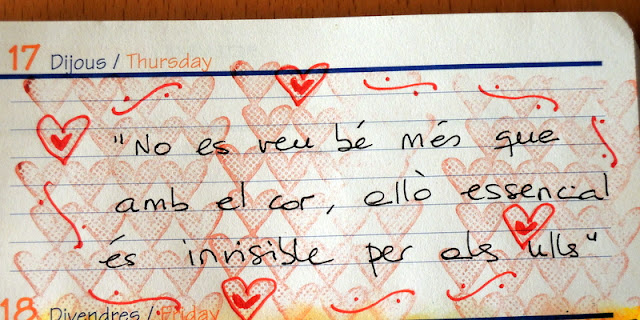 17 Dijous / Thursday
"No es veu bé més que
amb el cor, allò essencial
és invisible per als ulls"
18 Divendres / Friday